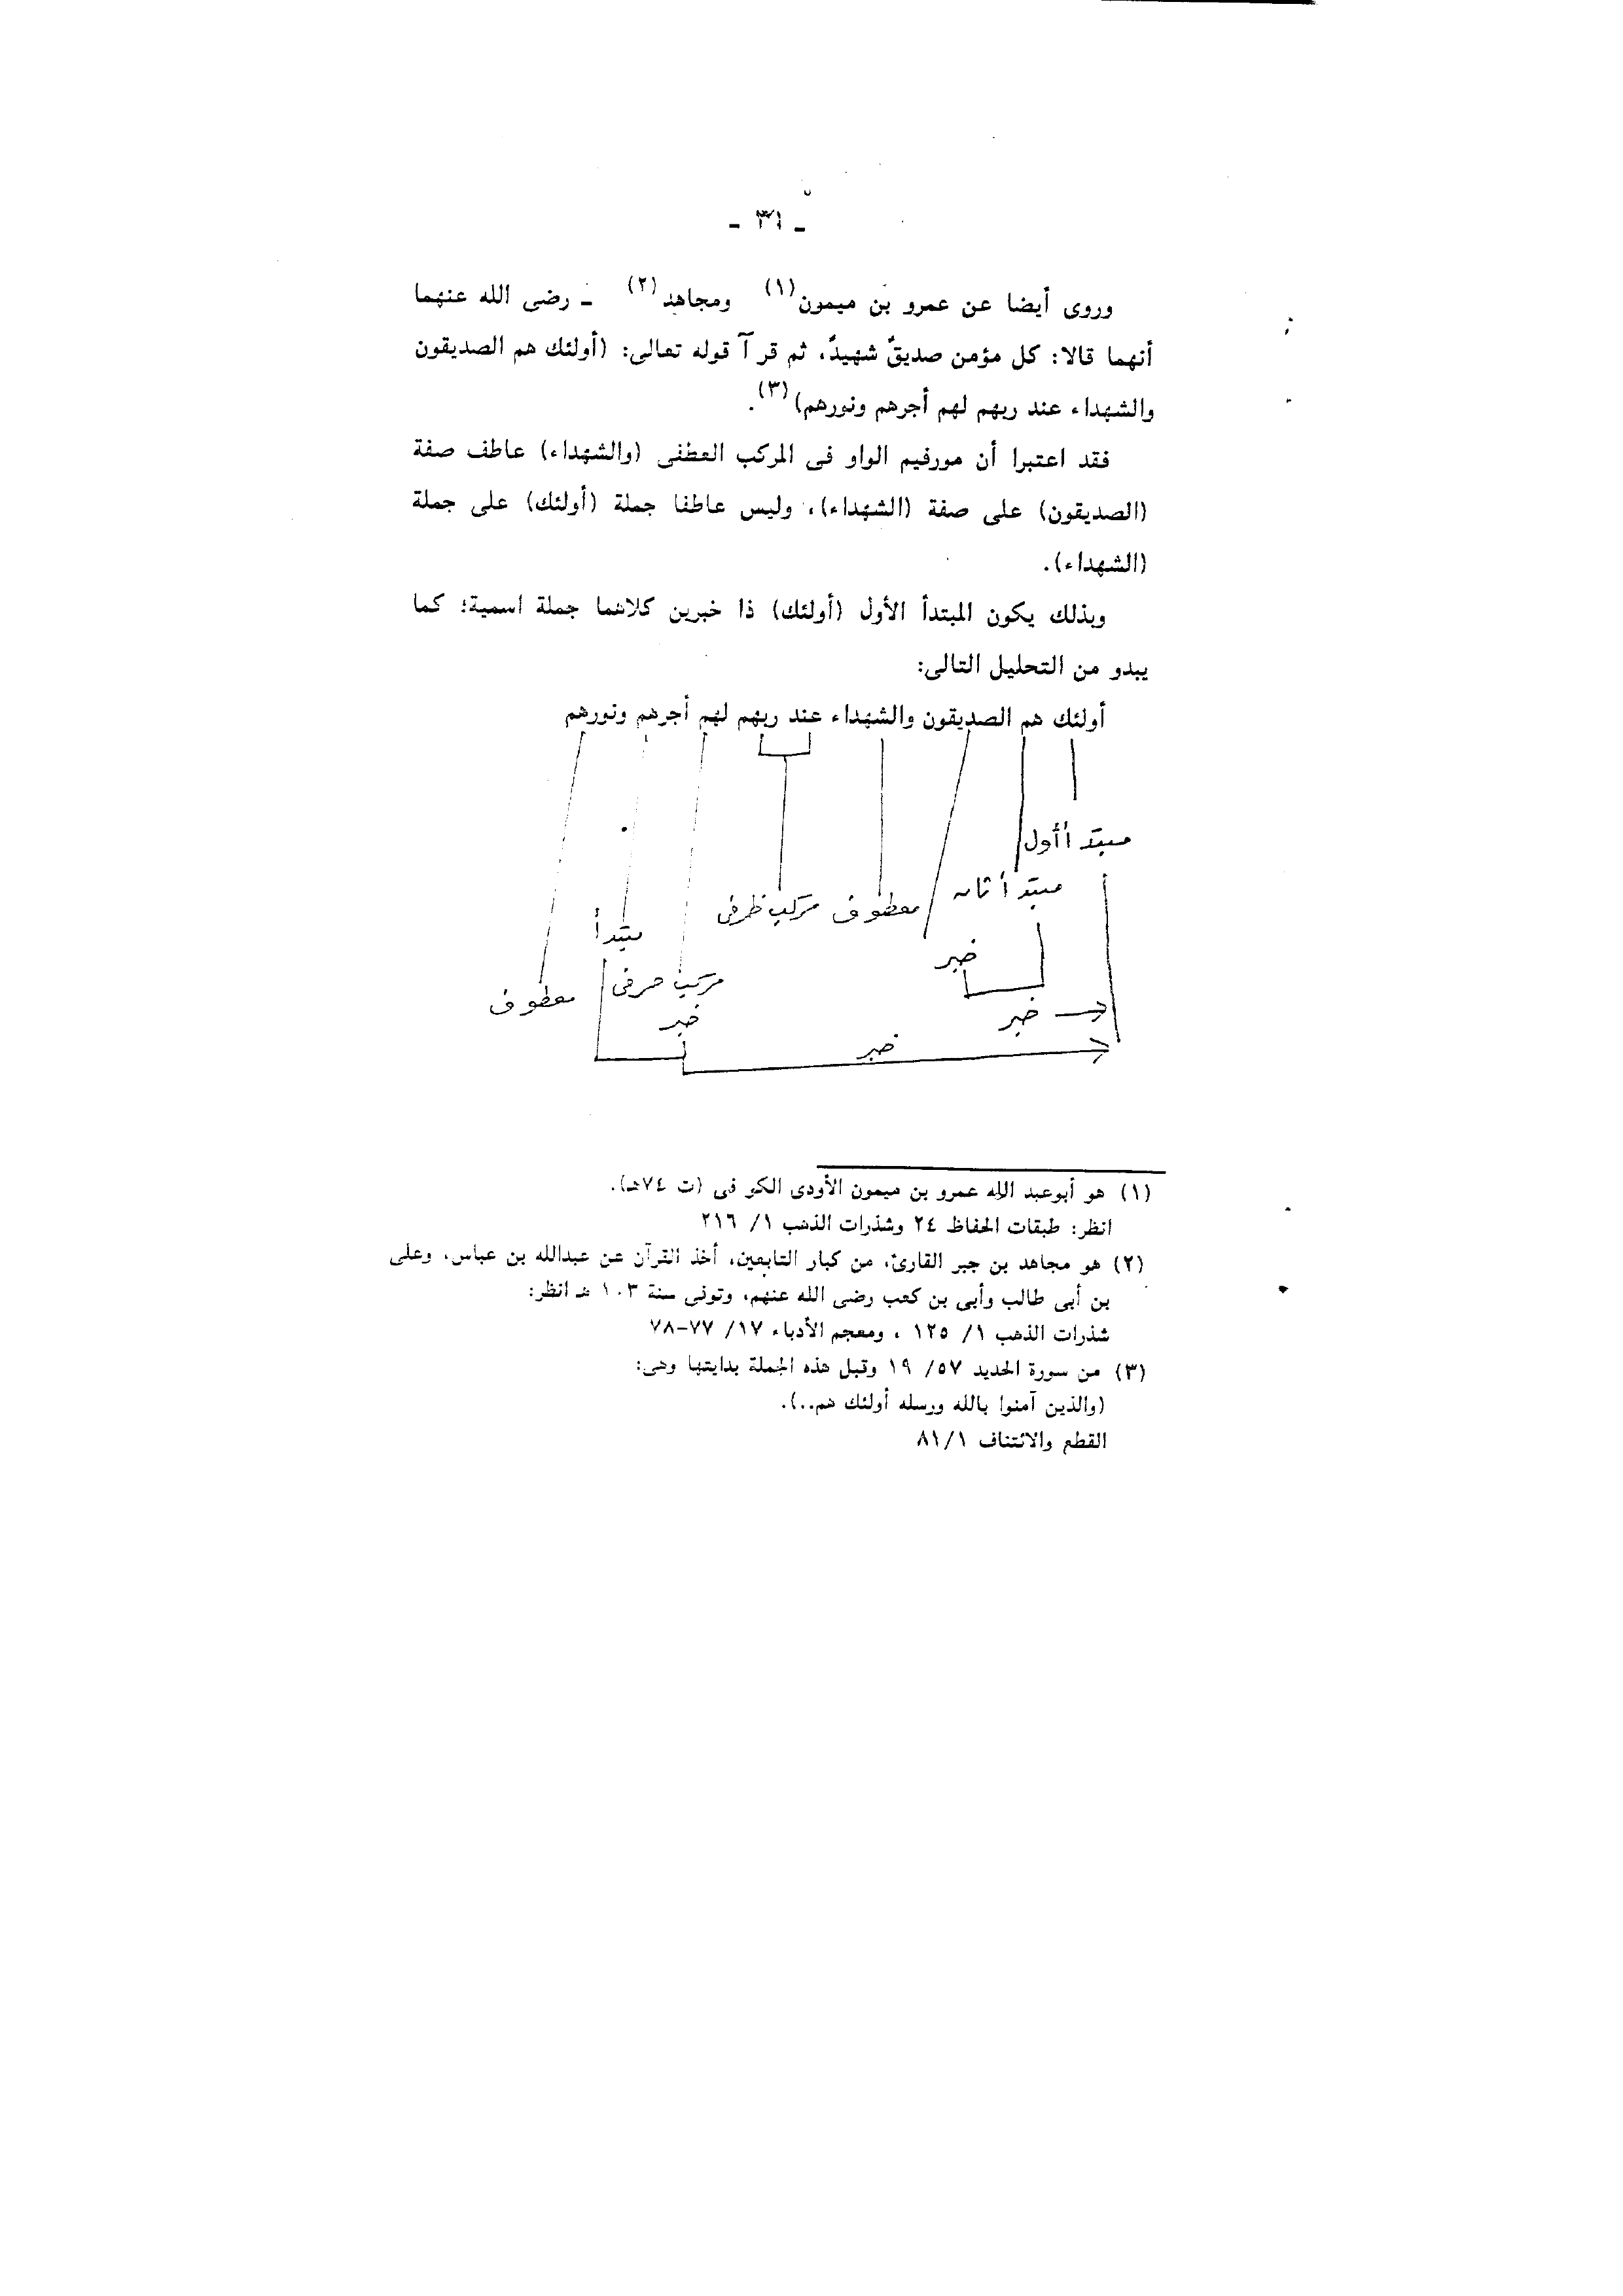 ـ ٣١ ـ
وروى أيضا عن عمرو بن ميمون(١) ومجاهد(٢) ـ رضى الله عنهما
أنهما قالا: كل مؤمن صديقٌ شهيدٌ، ثم قر آ قوله تعالى: (أولئك هم الصديقون
والشهداء عند ربهم لهم أجرهم ونورهم)(٣).
فقد اعتبرا أن مورفيم الواو فى المركب العطفى (والشهداء) عاطف صفة
(الصديقون) على صفة (الشهداء)، وليس عاطفا جملة (أولئك) على جملة
(الشهداء).
وبذلك يكون المبتدأ الأول (أولئك) ذا خبرين كلاهما جملة اسمية؛ كما
يبدو من التحليل التالى:
أولئك هم الصديقون والشهداء عند ربهم لهم أجرهم ونورهم
مبتدأ أول
مبتدأ ثان
معطوف مركب ظرفى
مبتدأ
خبر
مركب حرفى
معطوف
خبر
خبر
خبر
(١) هو أبوعبد الله عمرو بن ميمون الأودى الكو فى (ت ٧٤هـ).
انظر: طبقات الحفاظ ٢٤ وشذرات الذهب ١/ ٢١٦
(٢) هو مجاهد بن جبر القارئ، من كبار التابعين، أخذ القرآن عن عبدالله بن عباس، وعلى
بن أبى طالب وأبى بن كعب رضى الله عنهم، وتوفى سنة ١٠٣ هـ انظر:
شذرات الذهب ١/ ١٢٥ ، ومعجم الأدباء ١٧/ ٧٧-٧٨
(٣) من سورة الحديد ٥٧/ ١٩ وقبل هذه الجملة بدايتها وهى:
(والذين آمنوا بالله ورسله أولئك هم..).
القطع والائتناف ٨١/١